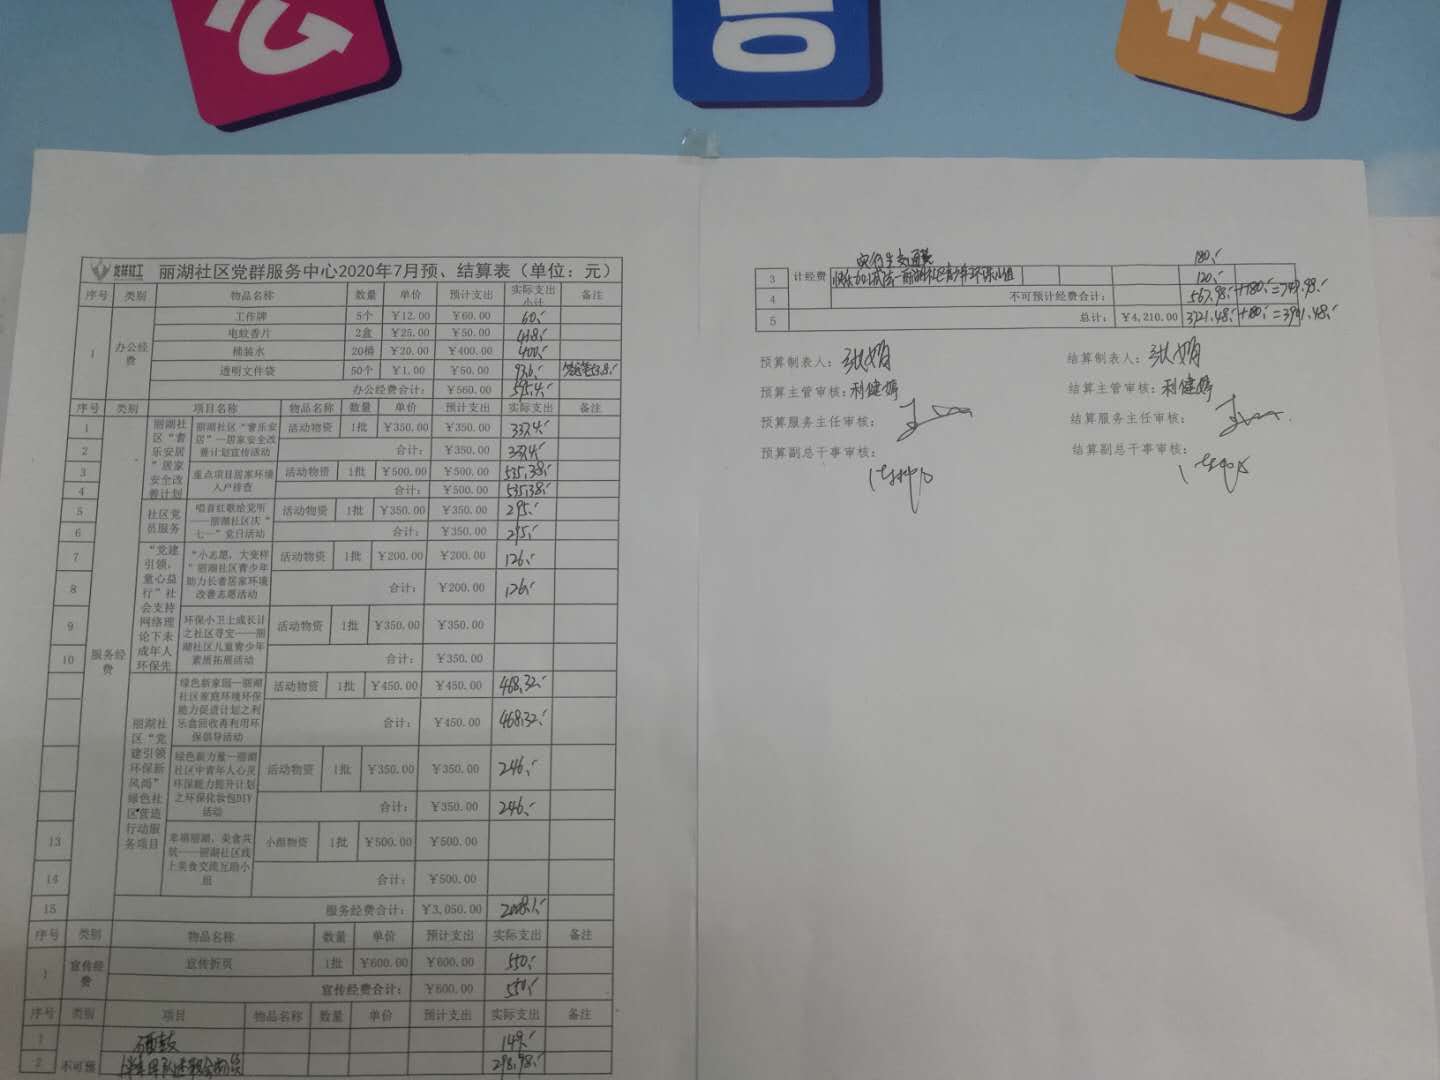 龙祥社工 丽湖社区党群服务中心2020年7月预、结算表（单位：元）
序号 类别 物品名称 数量 单价 预计支出 实际支出小计 备注
1 办公经费 工作牌 5个 ¥12.00 ¥60.00 60.
电蚊香片 2盒 ¥25.00 ¥50.00
桶装水 20桶 ¥20.00 ¥400.00 400.
透明文件袋 50个 ¥1.00 ¥50.00 93.6
办公经费合计： ¥560.00 595.4
序号 类别 项目名称 物品名称 数量 单价 预计支出 实际支出 备注
服务经费
丽湖社区“耆乐安居”居家安全改善计划
1 丽湖社区“耆乐安居”—居家安全改善计划宣传活动 活动物资 1批 ¥350.00 ¥350.00 337.4
2 合计： ¥350.00 337.4
3 重点项目居家环境入户排查 活动物资 1批 ¥500.00 ¥500.00 535.38
4 合计： ¥500.00 535.38
社区党员服务
5 唱首红歌给党听——丽湖社区庆“七一”党日活动 活动物资 1批 ¥350.00 ¥350.00 295.
6 合计： ¥350.00 295.
“党建引领，童心益行”社会支持网络理论下未成年人环保先
7 “小志愿，大变样”丽湖社区青少年助力长者居家环境改善志愿活动 活动物资 1批 ¥200.00 ¥200.00 126.
8 合计： ¥200.00 126.
9 环保小卫士成长计之社区寻宝——丽湖社区儿童青少年素质拓展活动 活动物资 1批 ¥350.00 ¥350.00
10 合计： ¥350.00
丽湖社区“党建引领环保新风尚”绿色社区营造行动服务项目
绿色新家园—丽湖社区家庭环境环保能力促进计划之利乐盒回收再利用环保倡导活动 活动物资 1批 ¥450.00 ¥450.00 468.32
合计： ¥450.00 468.32
绿色新力量—丽湖社区中青年人心灵环保能力提升计划之环保化妆包DIY活动 活动物资 1批 ¥350.00 ¥350.00 246.
合计： ¥350.00 246.
13 幸福丽湖，美食共筑——丽湖社区线上美食交流互助小组 小组物资 1批 ¥500.00 ¥500.00
14 合计： ¥500.00
15 服务经费合计： ¥3,050.00 2008.1
序号 类别 物品名称 数量 单价 预计支出 实际支出 备注
1 宣传经费 宣传折页 1批 ¥600.00 ¥600.00 550.
宣传经费合计： ¥600.00 550.
序号 类别 项目 物品名称 数量 单价 预计支出 实际支出 备注
1 硒鼓 149.
2 不可预 298.98
180.
3 计经费 120.
4 不可预计经费合计： 567.98 +180. =747.98
5 总计： ¥4,210.00 3721.48 +180. =3901.48
预算制表人： 结算制表人：
预算主管审核：利健婷 结算主管审核：利健婷
预算服务主任审核： 结算服务主任审核：
预算副总干事审核： 结算副总干事审核：